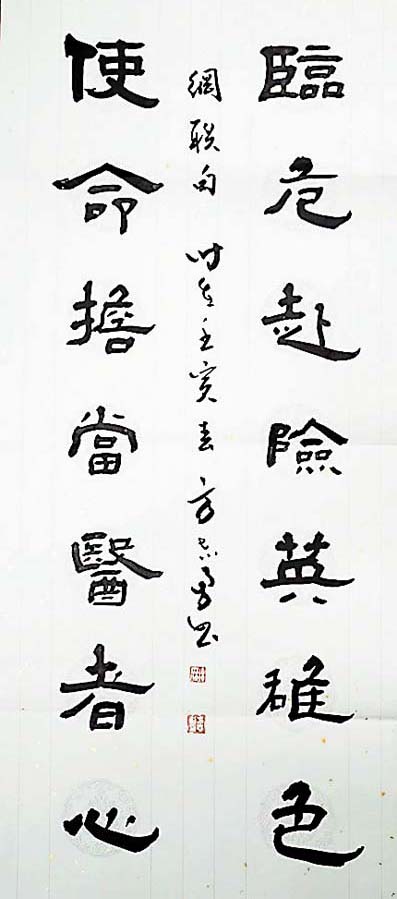 臨危赴險英雄色
網联句 时在壬寅春 方书
使命擔當醫者心